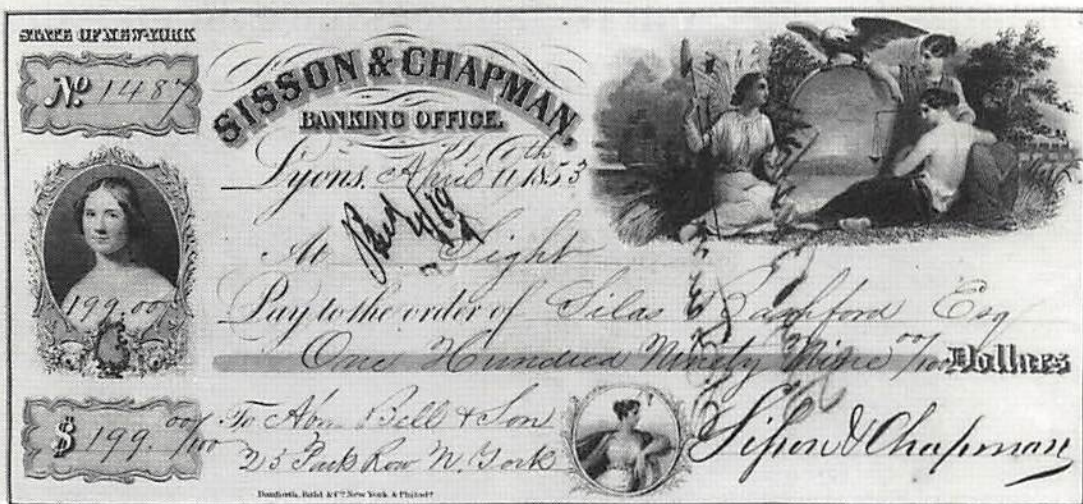 STATE OF NEW-YORK
No 1487
SISSON & CHAPMAN,
BANKING OFFICE.
Lyons, April 1853
At Sight
199.00
Pay to the order of Silas Esq
One Hundred Ninety Nine 00/100 Dollars
$ 199. 00/100
To Abm Bell & Son
25 Park Row N. York
Sisson & Chapman
Danforth, Bald & Co. New York & Philada